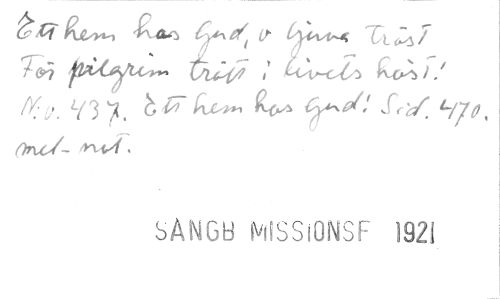 Ett hem hos Gud, o ljuva tröst
För pilgrim trött i livets höst!
N:o. 437. Ett hem hos Gud! Sid. 470.
mel- not.
SÅNGB MISSIONSF 1921